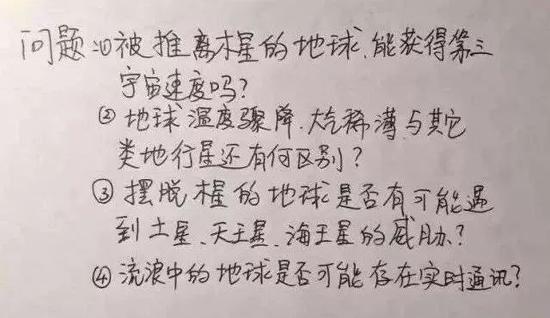 问题:①被推离木星的地球,能获得第三
宇宙速度吗?
②地球温度骤降、大气稀薄与其它
类地行星还有何区别?
③摆脱木星的地球是否有可能遇
到土星、天王星、海王星的威胁?
④流浪中的地球是否可能存在实时通讯?